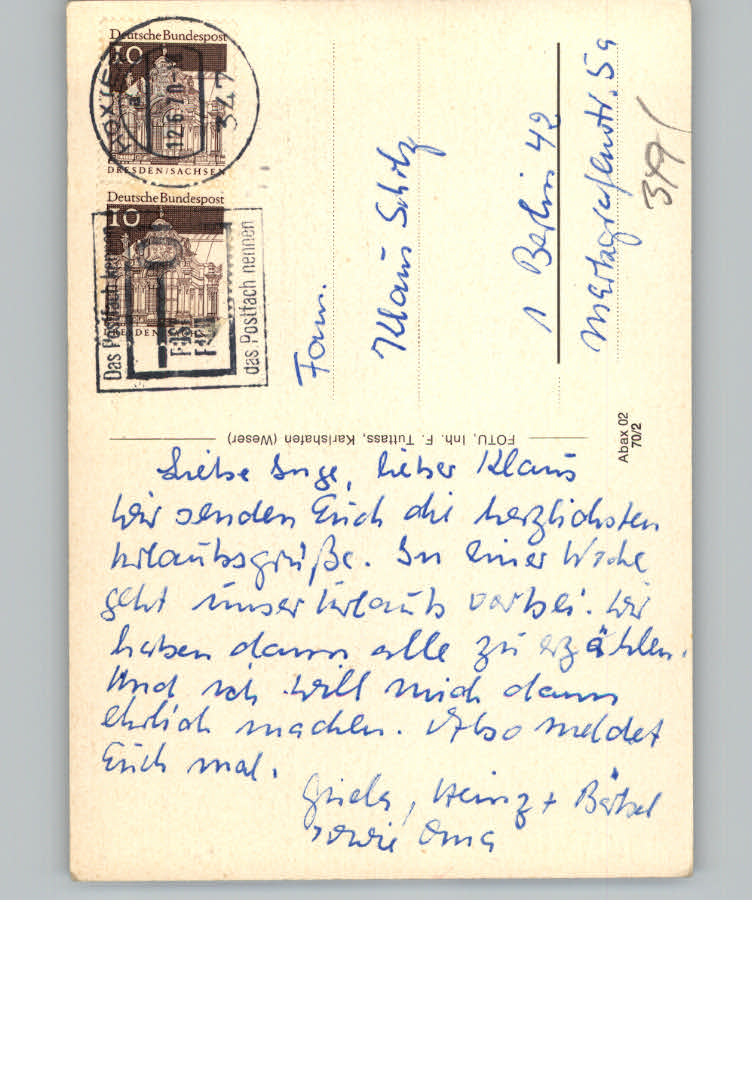 Deutsche Bundespost
10
DRESDEN/SACHSEN
HÖXTER
12.6.70
347
Deutsche Bundespost
10
DRESDEN
Das Postfach kennen
das Postfach nennen
Fam.
Klaus Scholz
1 Berlin 42
5a
399
FOTU, Inh. F. Tuttass, Karlshafen (Weser)
Abax 02
70/2
Liebe Inge, lieber Klaus
Wir senden Euch die herzlichsten
Urlaubsgrüße. In einer Woche
geht unser Urlaub vorbei. Wir
haben dann alle zu erzählen.
Und ich will mich dann
ehrlich machen. Also meldet
Euch mal.
Gisela, Heinz + Bärbel
sowie Oma